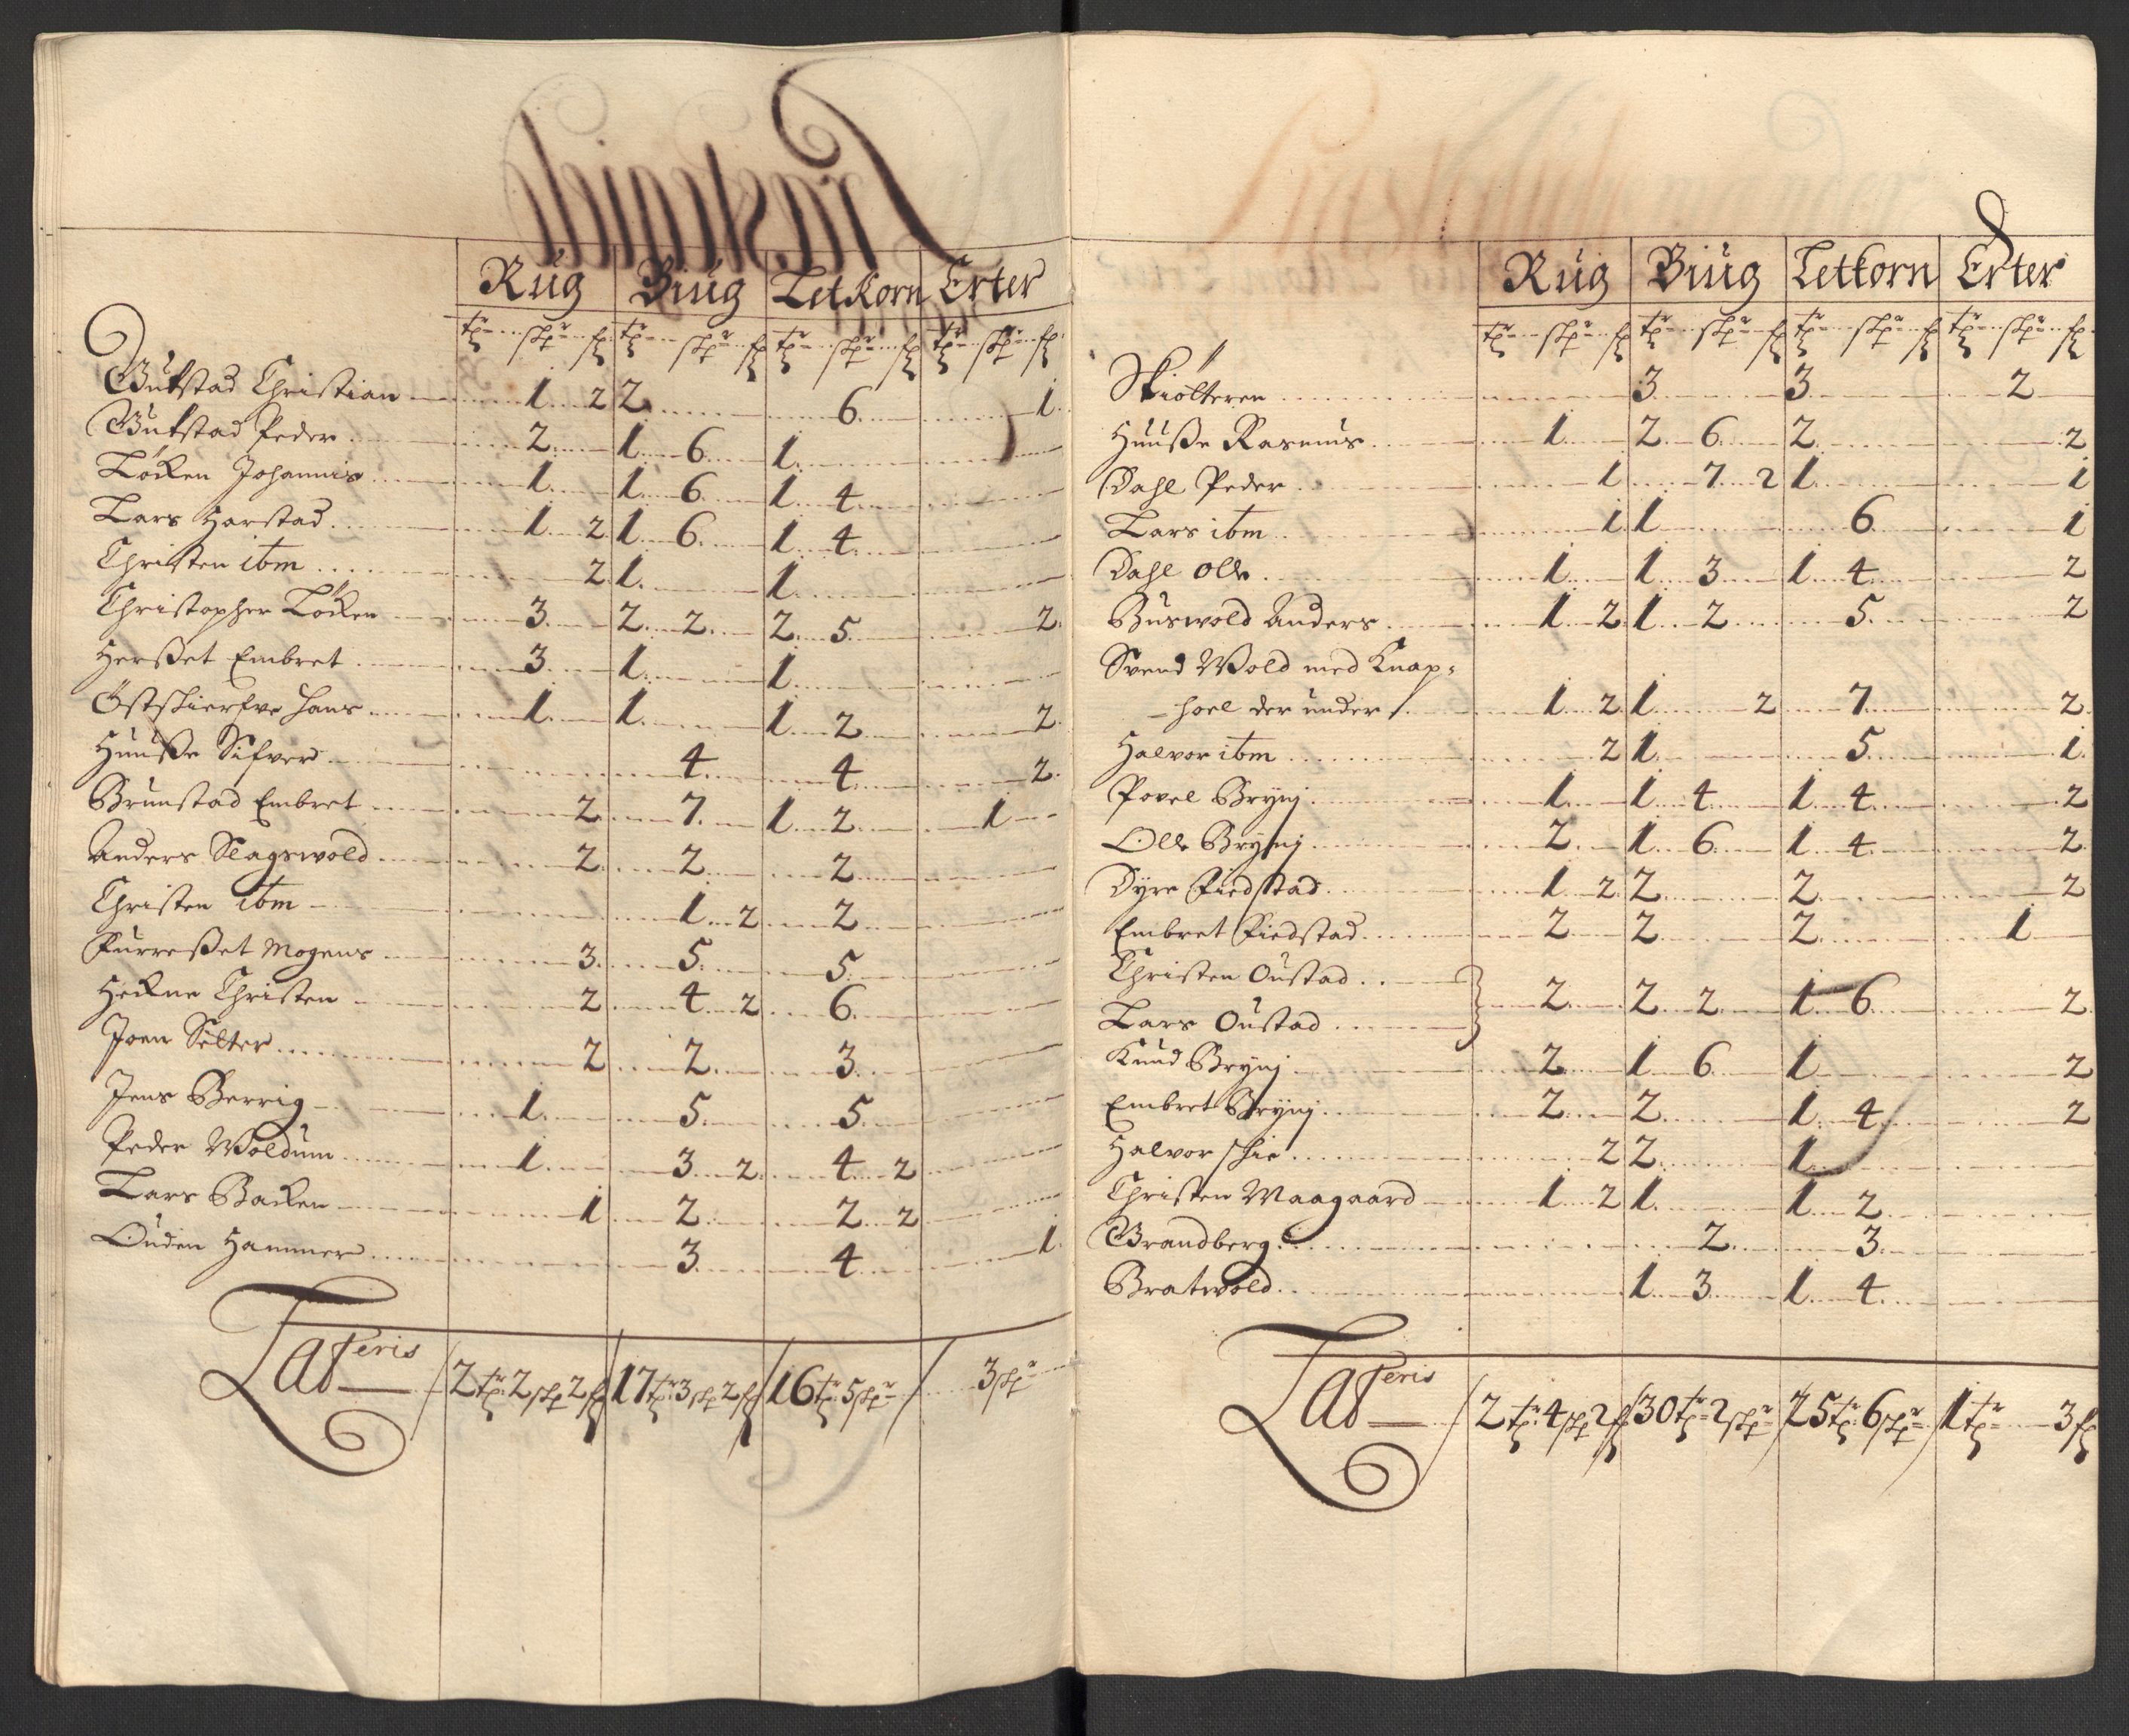 Rug Biug Letkorn Erter
tr skpr f tr skpr f tr skpr f tr skpr f
Butstad Christian 1 2 2 6 1
Butstad Peder 2 1 6 1
Löcken Johannis 1 1 6 1 4
Lars Harstad 1 2 1 6 1 4
Christen ibm 2 1 1
Christopher Löcken 3 2 2 2 5 2
Herßet Embret 3 1 1
Hans 1 1 1 2 2
Huuße Sifver 4 4 2
Brunstad Embret 2 7 1 2 1
Anders Slagswold 2 2 2
Christen ibm 1 2 2
Furreßet Mogens 3 5 5
Heckne Christen 2 4 2 6
Joen Sölter 2 2 3
Jens Berrig 1 5 5
Peder Woldum 1 3 2 4 2
Lars Backen 1 2 2 2
Ouden Hammer 3 4 1
Lateris 2 tr 2 skp 2 f 17 tr 3 skp 2 f 16 tr 5 skpr 3 skpr
Rug Biug Letkorn Erter
tr skpr f tr skpr f tr skpr f tr skpr f
Skiölteren 3 3 2
Huuße Rasmus 1 2 6 2 2
Dahl Peder 1 7 2 1 1
Lars ibm 1 1 6 1
Dahl Olle 1 1 3 1 4 2
Buswold Anders 1 2 1 2 5 2
Svend Wold med Knap-
hoel der under 1 2 1 2 7 2
Halvor ibm 2 1 5 1
Povel Brynj 1 1 4 1 4 2
Olle Brynj 2 1 6 1 4 2
Dyre Fiedstad 1 2 2 2 2
Embret Fiedstad 2 2 2 1
Christen Oustad
Lars Oustad 2 2 2 1 6 2
Knud Brynj 2 1 6 1 2
Embret Brynj 2 2 1 4 2
Halvor schie 2 2 1
Christen Waagaard 1 2 1 1 2
Brandberg 2 3
Bratwold 1 3 1 4
Lateris 2 tr 4 skp 2 f 30 tr 2 skpr 25 tr 6 skpr 1 tr 3 f